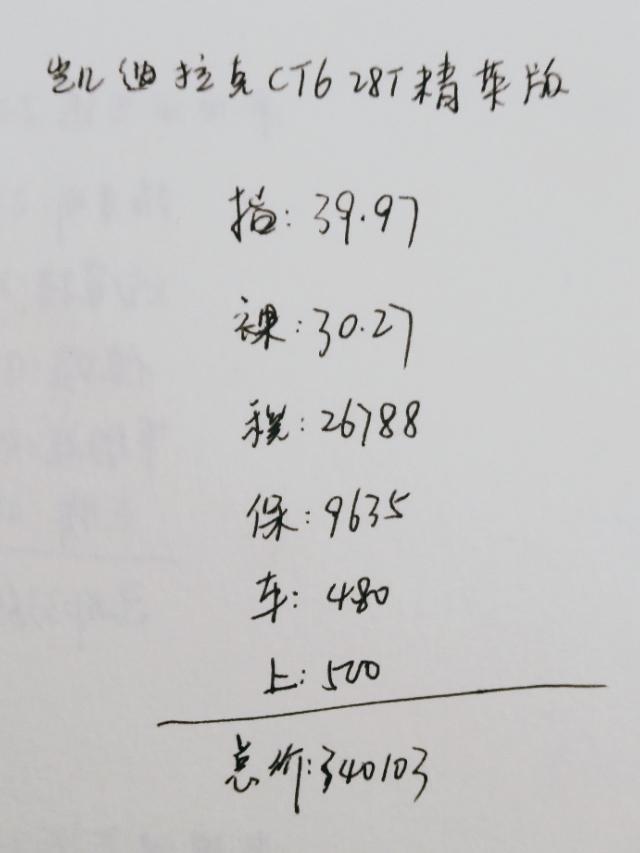 凯迪拉克CT6 28T精英版
指:39.97
裸:30.27
税:26788
保:9635
车:480
上:500
总价:340103